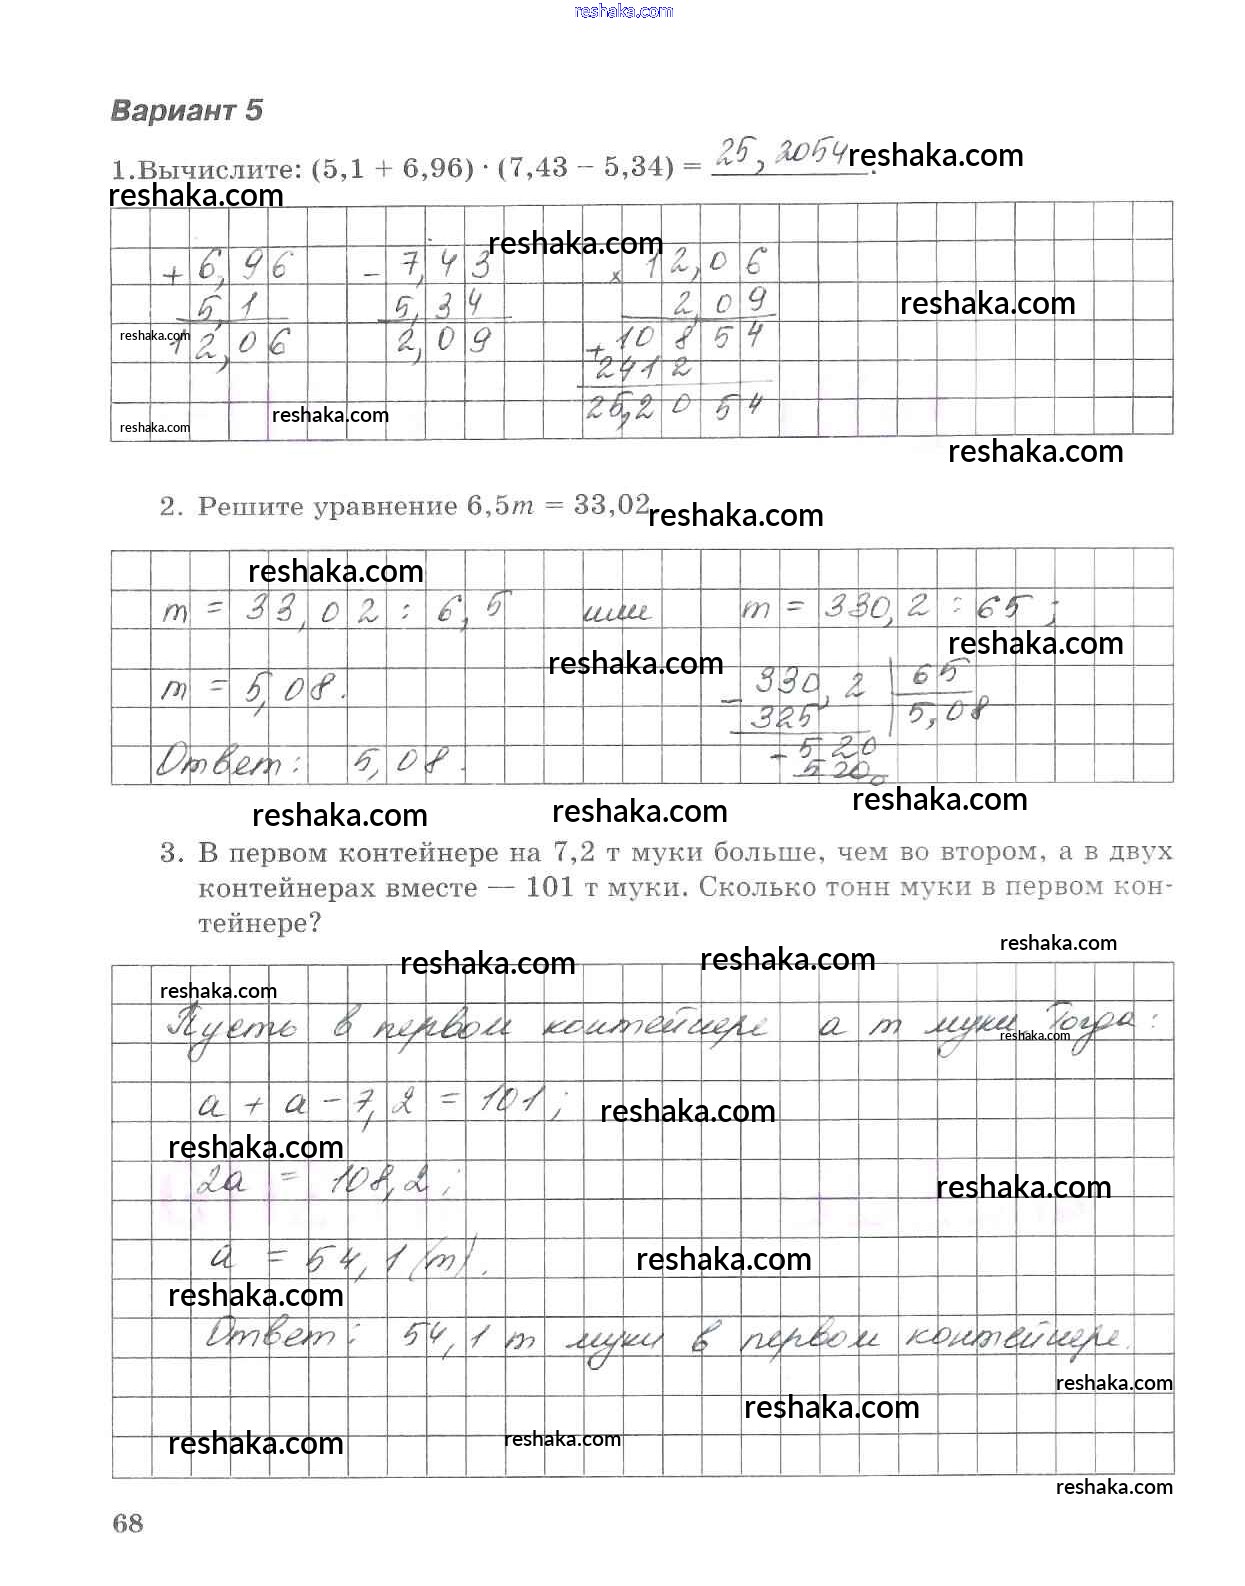 reshaka.com
Вариант 5
1.Вычислите: (5,1 + 6,96) · (7,43 − 5,34) = 25,2054.
reshaka.com
reshaka.com
reshaka.com
+ 6,96 − 7,43 × 12,06
5,1 5,34 2,09
reshaka.com
12,06 2,09 + 10854
reshaka.com
2412
25,2054
reshaka.com
reshaka.com
reshaka.com
2. Решите уравнение 6,5m = 33,02
reshaka.com
reshaka.com
m = 33,02 : 6,5 или m = 330,2 : 65;
reshaka.com
reshaka.com
m = 5,08. − 330,2 | 65
325 5,08
− 520
Ответ: 5,08. 520
0
reshaka.com
reshaka.com
reshaka.com
3. В первом контейнере на 7,2 т муки больше, чем во втором, а в двух
контейнерах вместе — 101 т муки. Сколько тонн муки в первом кон-
тейнере?
reshaka.com
reshaka.com
reshaka.com
reshaka.com
Пусть в первом контейнере а т муки. Тогда:
reshaka.com
а + а − 7,2 = 101;
reshaka.com
reshaka.com
2а = 108,2;
reshaka.com
а = 54,1 (т).
reshaka.com
reshaka.com
Ответ: 54,1 т муки в первом контейнере.
reshaka.com
reshaka.com
reshaka.com
reshaka.com
reshaka.com
68